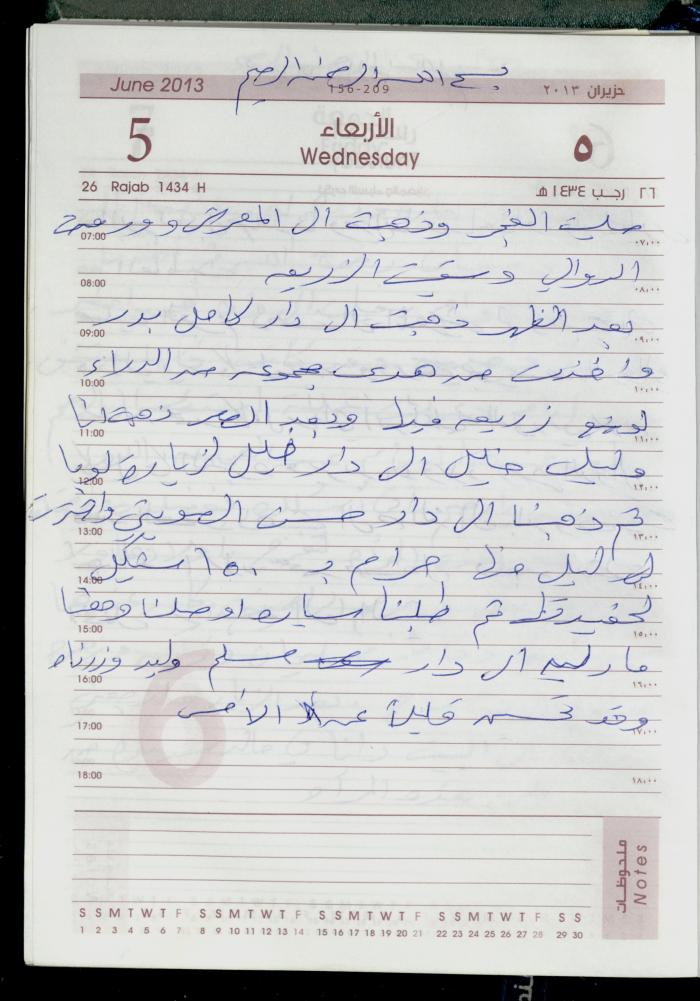 بسم الله الرحمن الرحيم
June 2013 156-209 حزيران ٢٠١٣
5 الأربعاء ٥
Wednesday
26 Rajab 1434 H ٢٦ رجب ١٤٣٤ هـ
صليت الفجر وذهبت ال المعرش و
07:00 ٠٧:٠٠
الدوالي وسقيت الزريعه
08:00 ٠٨:٠٠
بعد الظهر ذهبت ال دار كامل بدر
09:00 ٠٩:٠٠
واخذت من هدى مجموعه من الدلاء
10:00 ١٠:٠٠
زريعه فيها وبعد العصر ذهبت انا
11:00 ١١:٠٠
خليل ال دار خليل لزياره
12:00 ١٢:٠٠
ثم ذهبنا ال دار حسن
13:00 ١٣:٠٠
حرام ب ١٥٠ شيكل
14:00 ١٤:٠٠
ثم طلبنا سياره اوصلنا
15:00 ١٥:٠٠
ال دار مسلم وليد وزرناه
16:00 ١٦:٠٠
وقد تحسن قليلاً عن الامس
17:00 ١٧:٠٠
18:00 ١٨:٠٠
ملحوظات
Notes
S S M T W T F S S M T W T F S S M T W T F S S M T W T F S S
1 2 3 4 5 6 7 8 9 10 11 12 13 14 15 16 17 18 19 20 21 22 23 24 25 26 27 28 29 30